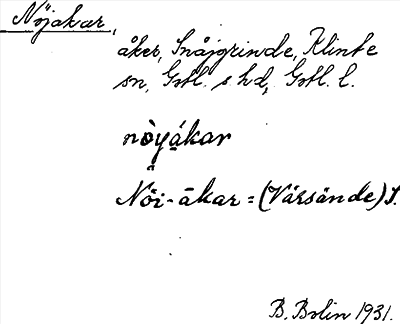 Nöjakar,
åker, Snäjgrinde, Klinte
sn, Gotl. s. hd, Gotl. l.
nòyákar
Nöi-åkar = (Värsände) S.
B. Bolin 1931.